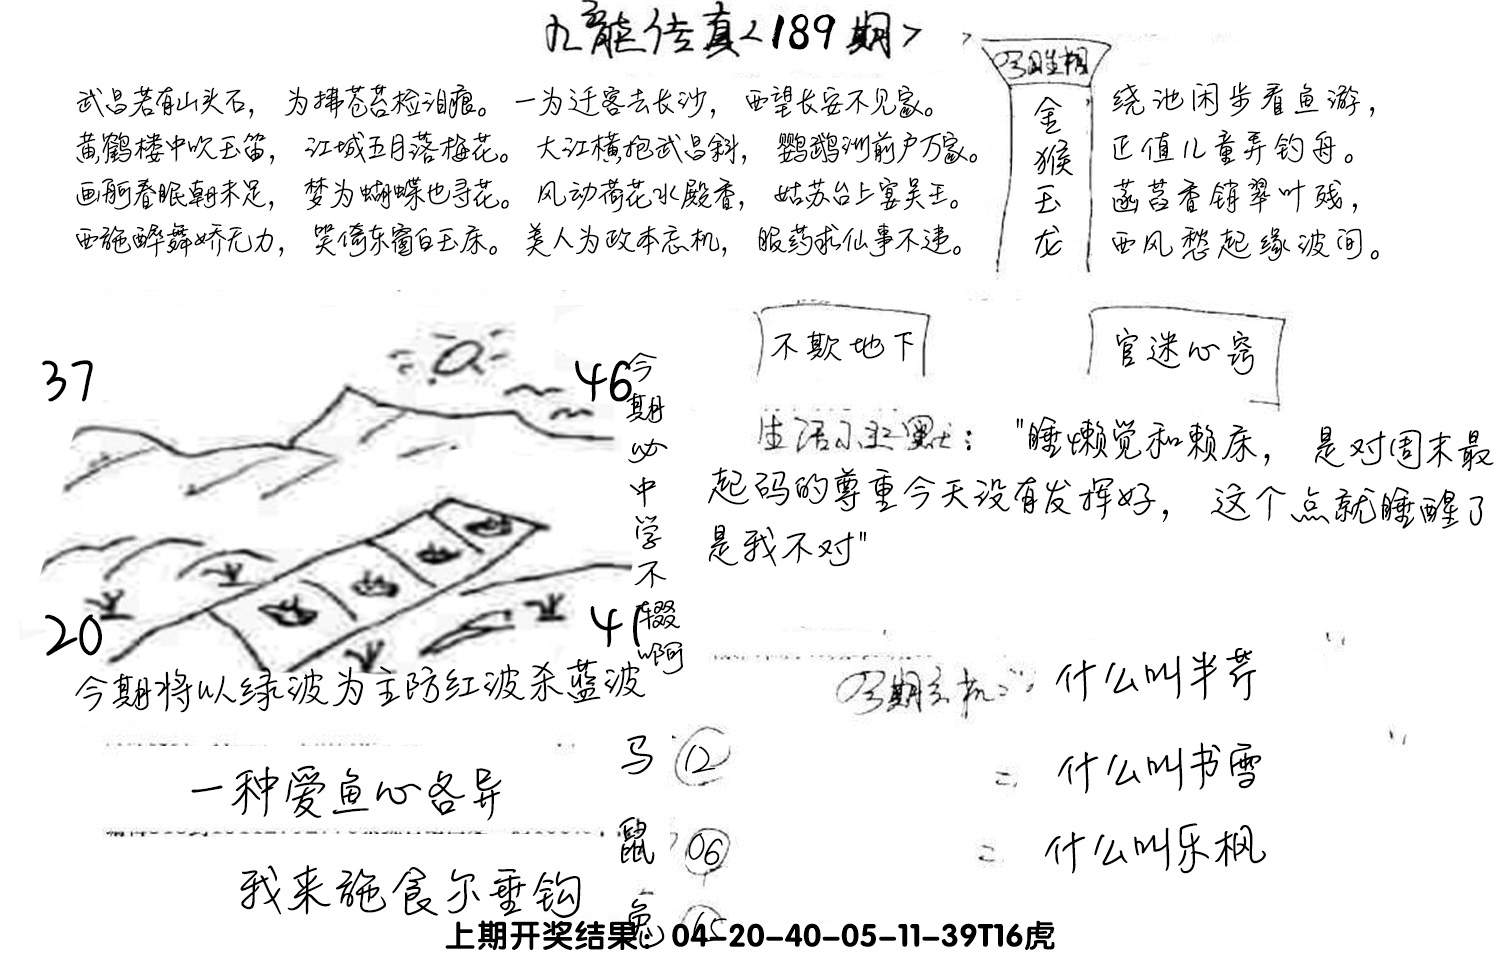 九龙传真<189期>
武昌若有山头石，为拂苍苔检泪痕。一为迁客去长沙，西望长安不见家。
黄鹤楼中吹玉笛，江城五月落梅花。大江横抱武昌斜，鹦鹉洲前户万家。
画舸春眠朝未足，梦为蝴蝶也寻花。风动荷花水殿香，姑苏台上宴吴王。
西施醉舞娇无力，笑倚东窗白玉床。美人为政本忘机，服药求仙事不违。
金猴玉龙
绕池闲步看鱼游，
正值儿童弄钓舟。
菡萏香销翠叶残，
西风愁起绿波间。
不欺地下
官迷心窍
37
46
20
41
今期必中学不辍啊
今期将以绿波为主防红波杀蓝波
："睡懒觉和赖床，是对周末最
起码的尊重今天没有发挥好，这个点就睡醒了
是我不对"
什么叫半芹
什么叫书雪
什么叫乐枫
一种爱鱼心各异
我来施食尔垂钩
马 12
鼠 06
兔
上期开奖结果：04-20-40-05-11-39T16虎